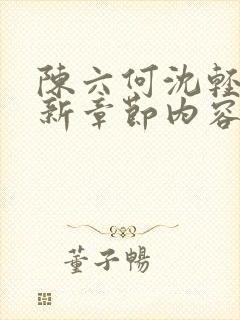 陳六何沈輕
新章節内容
董子暢